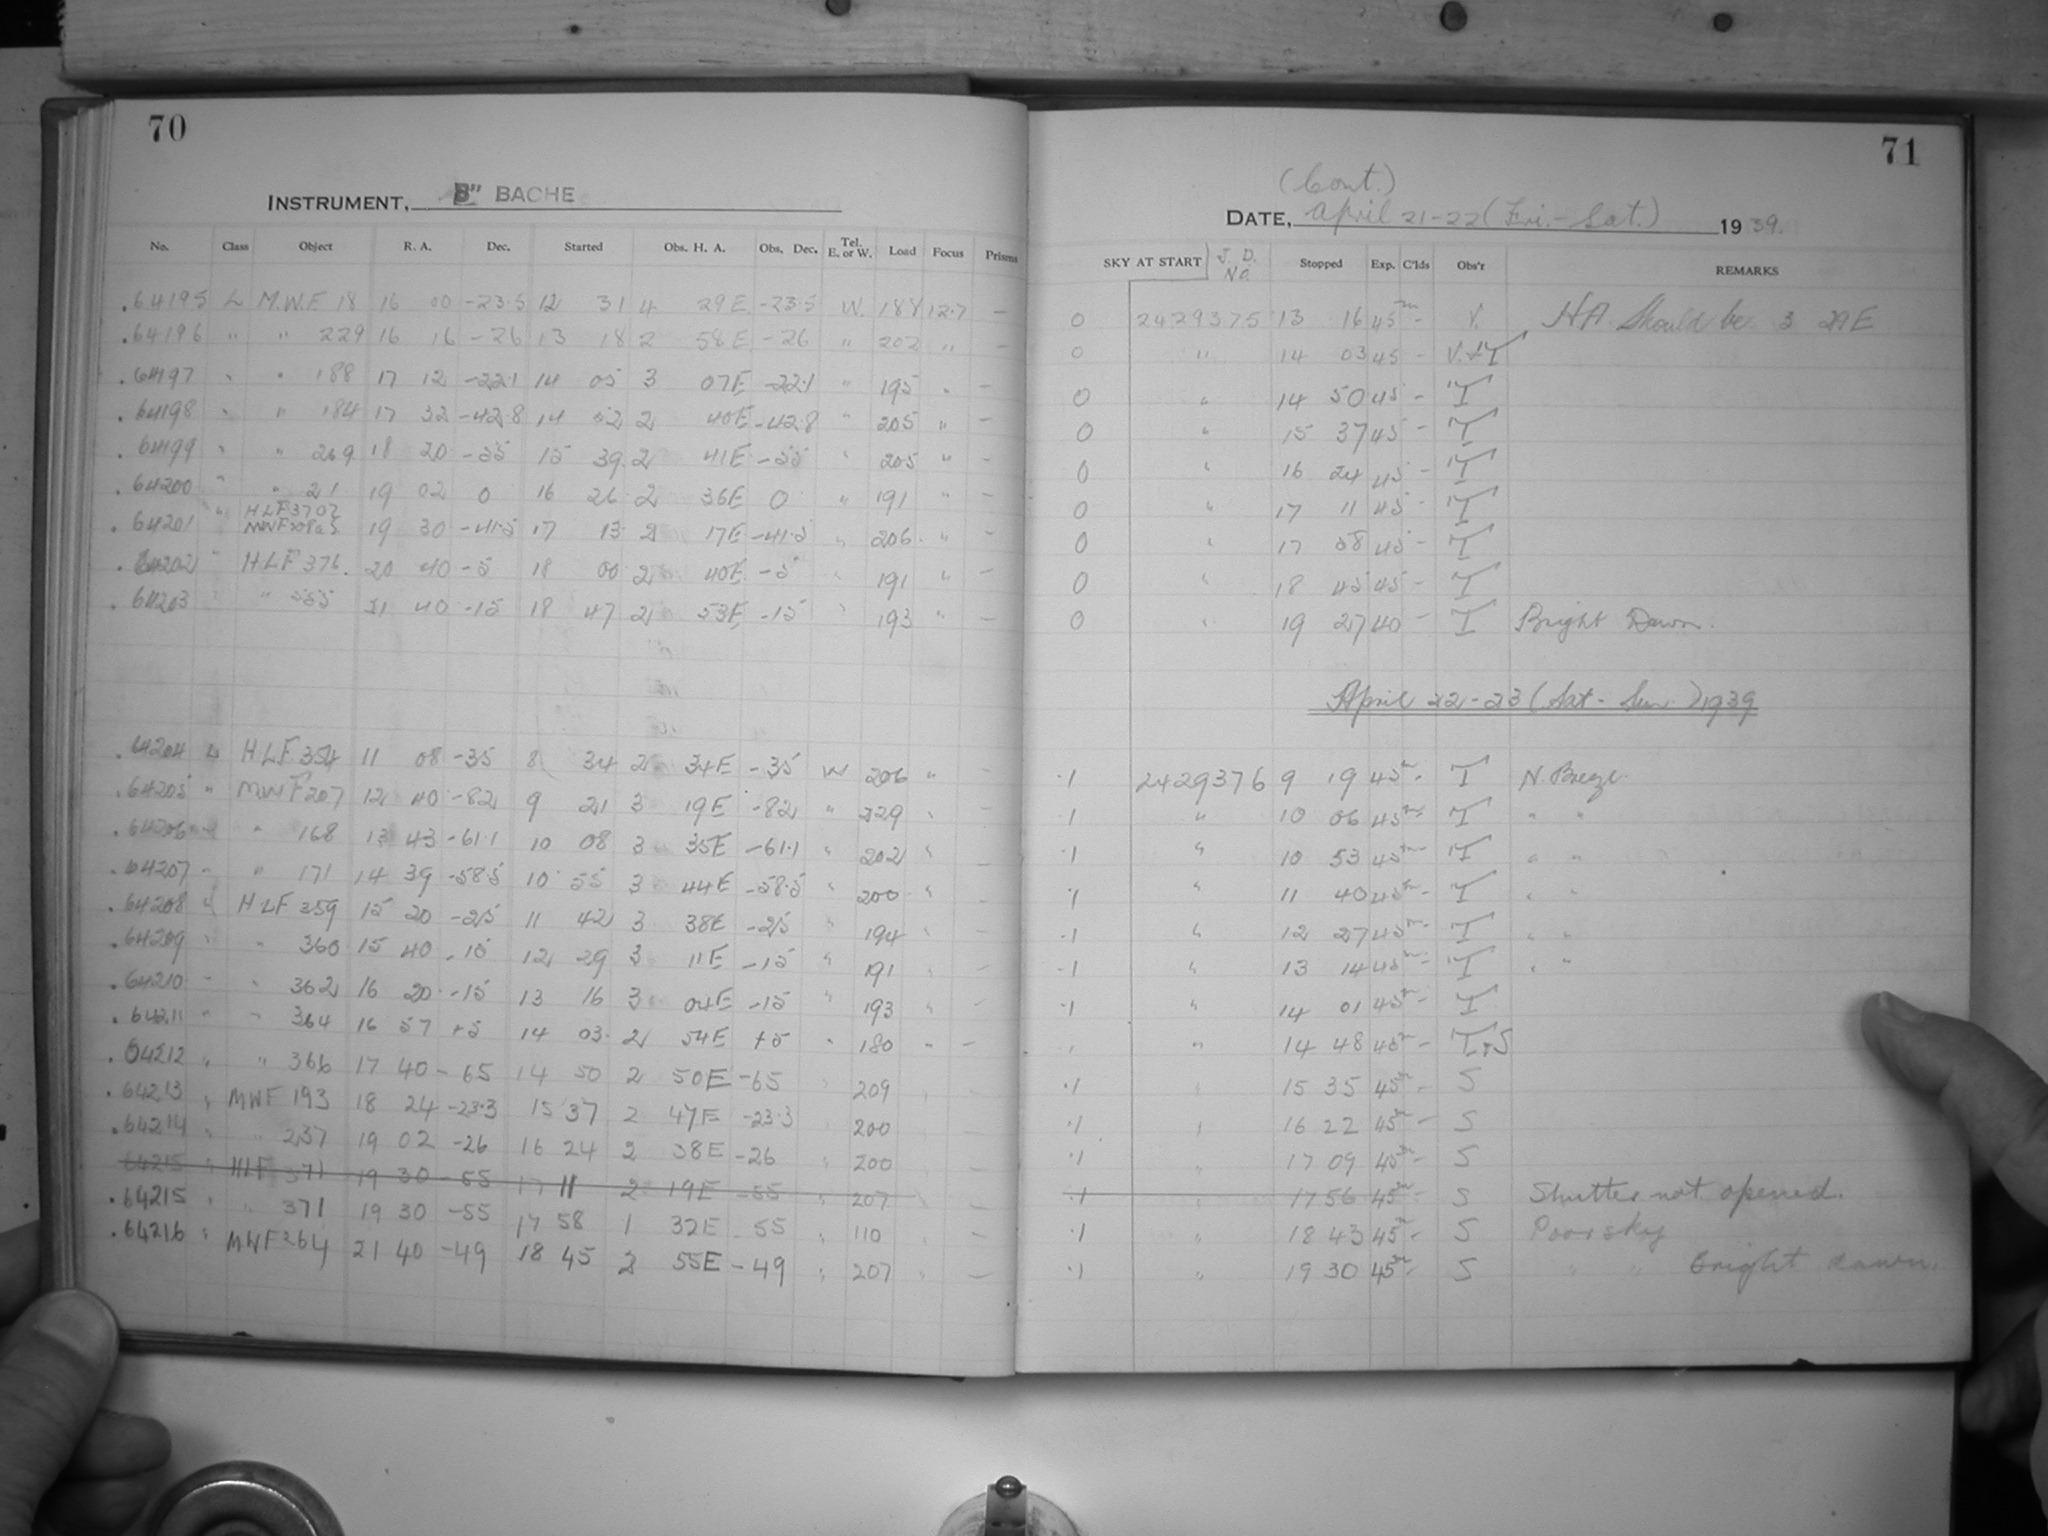 70
INSTRUMENT, 8" BACHE
No. Class Object R. A. Dec. Started Obs. H. A. Obs. Dec. Tel. E. or W. Load Focus Prisms
.64195 L M.W.F. 18 16 00 -23.5 12 31 4 29E -23.5 W. 188 12.7 —
.64196 " " 229 16 16 -26 13 18 2 58E -26 " 202 " —
.64197 " " 188 17 12 -22.1 14 05 3 07E -22.1 " 195 " —
.64198 " " 184 17 32 -42.8 14 52 2 40E -42.8 " 205 " —
.64199 " " 269 18 20 -55 15 39 2 41E -55 " 205 " —
.64200 " " 21 19 02 0 16 26 2 36E 0 " 191 " —
HLF 370
.64201 " MWF 19 30 -41.5 17 13 2 17E -41.5 " 206 " —
.64202 " HLF 376 20 40 -5 18 00 2 40E -5 " 191 " —
.64203 " " 21 40 -15 18 47 2 53E -15 " 193 " —
.64204 L HLF 354 11 08 -35 8 34 2 34E -35 W 206 " —
.64205 " MWF 207 12 40 -82 9 21 3 19E -82 " 229 " —
.64206 " " 168 13 43 -61.1 10 08 3 35E -61.1 " 202 " —
.64207 " " 171 14 39 -58.5 10 55 3 44E -58.5 " 200 " —
.64208 " HLF 359 15 20 -25 11 42 3 38E -25 " 194 " —
.64209 " " 360 15 40 -15 12 29 3 11E -15 " 191 " —
.64210 " " 362 16 20 -15 13 16 3 04E -15 " 193 " —
.64211 " " 364 16 57 +5 14 03 2 54E +5 " 180 " —
.64212 " " 366 17 40 -65 14 50 2 50E -65 " 209 " —
.64213 " MWF 193 18 24 -23.3 15 37 2 47E -23.3 " 200 " —
.64214 " " 237 19 02 -26 16 24 2 38E -26 " 200 " —
64215 " HLF 371 19 30 -55 17 11 2 19E -55 " 207 " —
.64215 " " 371 19 30 -55 17 58 1 32E 55 " 110 " —
.64216 " MWF 264 21 40 -49 18 45 2 55E -49 " 207 " —
71
(Cont.)
DATE, April 21-22 (Fri.-Sat.) 1939.
SKY AT START J. D. No. Stopped Exp. C'lds Obs'r REMARKS
0 2429375 13 16 45m — V. HA Should be 3 29E
0 " 14 03 45 — V.+T
0 " 14 50 45 — T
0 " 15 37 45 — T
0 " 16 24 45 — T
0 " 17 11 45 — T
0 " 17 58 45 — T
0 " 18 45 45 — T
0 " 19 27 40 — T Bright Dawn.
April 22-23 (Sat-Sun.) 1939
.1 2429376 9 19 45m — T N. Breeze.
.1 " 10 06 45m — T " "
.1 " 10 53 45m — T " "
.1 " 11 40 45m — T " "
.1 " 12 27 45m — T " "
.1 " 13 14 45m — T " "
.1 " 14 01 45m — T
" " 14 48 45m — T+S
.1 " 15 35 45m — S
.1 " 16 22 45m — S
.1 " 17 09 45m — S
.1 " 17 56 45m — S Shutter not opened.
.1 " 18 43 45m — S Poor sky
.1 " 19 30 45m — S " " Bright dawn.